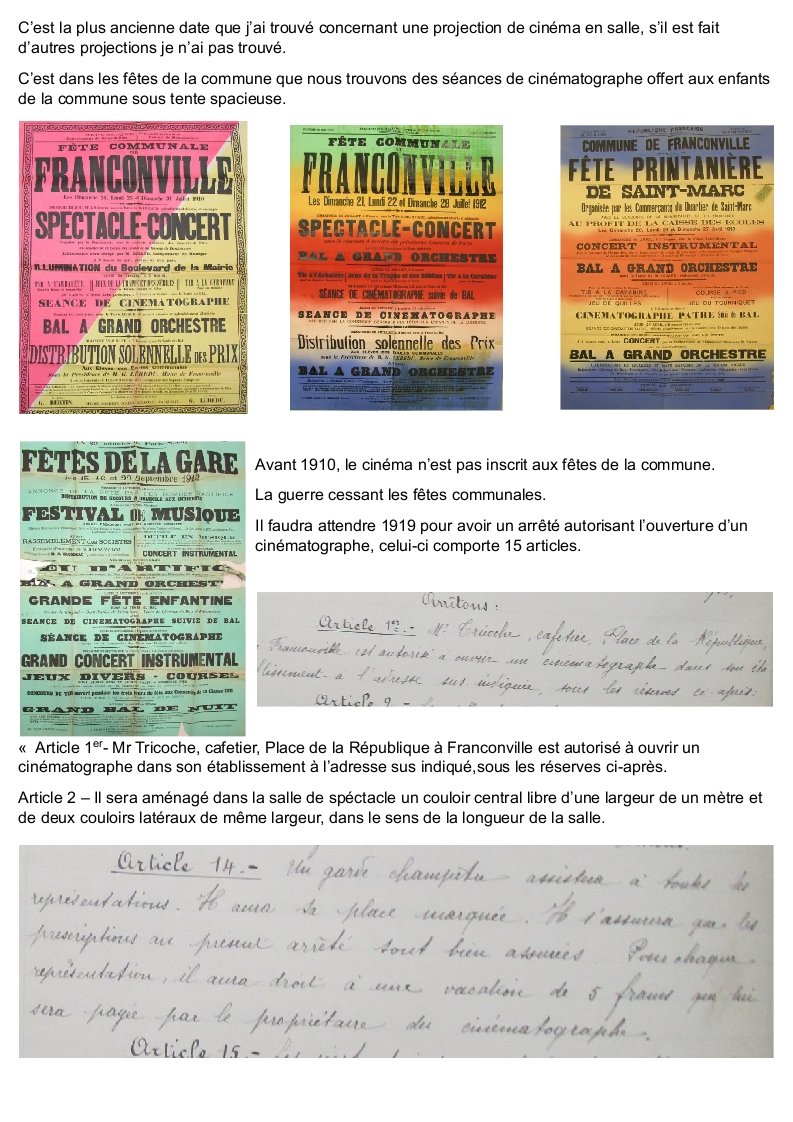 C’est la plus ancienne date que j’ai trouvé concernant une projection de cinéma en salle, s’il est fait
d’autres projections je n’ai pas trouvé.
C’est dans les fêtes de la commune que nous trouvons des séances de cinématographe offert aux enfants
de la commune sous tente spacieuse.
FÊTE COMMUNALE
FRANCONVILLE
Les Dimanche 24, Lundi 25 et Dimanche 31 Juillet 1910
SPECTACLE-CONCERT
ILLUMINATION du Boulevard de la Mairie
TIR A LA CARABINE
SEANCE DE CINEMATOGRAPHE
BAL A GRAND ORCHESTRE
DISTRIBUTION SOLENNELLE DES PRIX
G. BERTIN.
FÊTE COMMUNALE
FRANCONVILLE
Les Dimanche 21, Lundi 22 et Dimanche 28 Juillet 1912
SPECTACLE-CONCERT
BAL A GRAND ORCHESTRE
Tir à l'Arbalète Jeux de la Trappe et des Sables Tir à la Carabine
SÉANCE DE CINÉMATOGRAPHE suivie de BAL
SEANCE DE CINEMATOGRAPHE
Distribution solennelle des Prix
BAL A GRAND ORCHESTRE
REPUBLIQUE FRANÇAISE
COMMUNE DE FRANCONVILLE
FÊTE PRINTANIÈRE
DE SAINT-MARC
Organisée par les Commerçants du Quartier de Saint-Marc
AU PROFIT DE LA CAISSE DES ECOLES
Les Dimanche 20, Lundi 21 et Dimanche 27 Avril 1913
CONCERT INSTRUMENTAL
BAL A GRAND ORCHESTRE
TIR A LA CARABINE COURSE A PIED
JEU DE QUILLES JEU DU TOURNIQUET
CINEMATOGRAPHE PATHE Suivi de BAL
CONCERT
BAL A GRAND ORCHESTRE
FÊTES DE LA GARE
Septembre 1912
FESTIVAL DE MUSIQUE
RASSEMBLEMENT DES SOCIETES
CONCERT INSTRUMENTAL
BAL A GRAND ORCHEST
GRANDE FÊTE ENFANTINE
SEANCE DE CINEMATOGRAPHE SUIVIE DE BAL
SÉANCE DE CINEMATOGRAPHE
GRAND CONCERT INSTRUMENTAL
JEUX DIVERS - COURSES
GRAND BAL DE NUIT
Avant 1910, le cinéma n’est pas inscrit aux fêtes de la commune.
La guerre cessant les fêtes communales.
Il faudra attendre 1919 pour avoir un arrêté autorisant l’ouverture d’un
cinématographe, celui-ci comporte 15 articles.
Arrêtons :
Article 1er.- Mr Tricoche, cafetier, Place de la République,
Franconville est autorisé à ouvrir un cinématographe dans son éta
blissement à l'adresse sus indiquée, sous les réserves ci-après:
Article 2 -
« Article 1er- Mr Tricoche, cafetier, Place de la République à Franconville est autorisé à ouvrir un
cinématographe dans son établissement à l’adresse sus indiqué,sous les réserves ci-après.
Article 2 – Il sera aménagé dans la salle de spéctacle un couloir central libre d’une largeur de un mètre et
de deux couloirs latéraux de même largeur, dans le sens de la longueur de la salle.
Article 14.- Un garde champêtre assistera à toutes les
représentations. Il aura sa place marquée. Il s'assurera que les
prescriptions au présent arrêté sont bien assurées. Pour chaque
représentation, il aura droit à une vacation de 5 francs qui lui
sera payée par le propriétaire du cinématographe.
Article 15.-